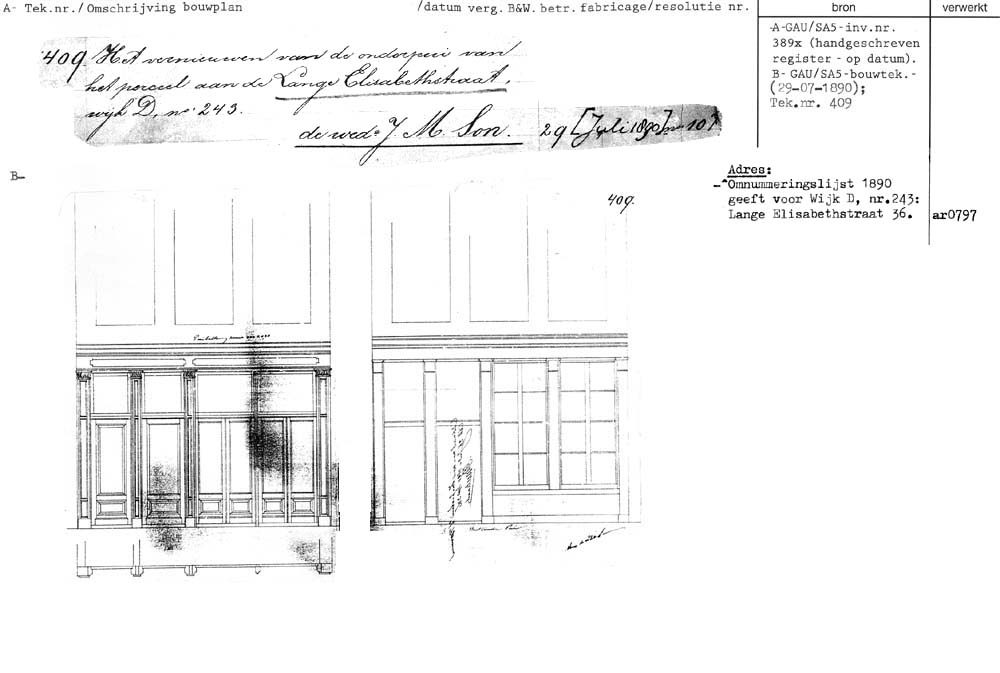 A- Tek.nr./Omschrijving bouwplan /datum verg. B&W. betr. fabricage/resolutie nr.
bron
verwerkt
409 Het vernieuwen van de onderpui van
het perceel aan de Lange Elisabethstraat,
wijk D, no 243.
de wede J. M. Son. 29 [Juli 1890] no 107
A-GAU/SA5-inv.nr.
389x (handgeschreven
register - op datum).
B- GAU/SA5-bouwtek.-
(29-07-1890);
Tek.nr. 409
B-
Adres:
-^Omnummeringslijst 1890
geeft voor Wijk D, nr.243:
Lange Elisabethstraat 36.
ar0797
409.